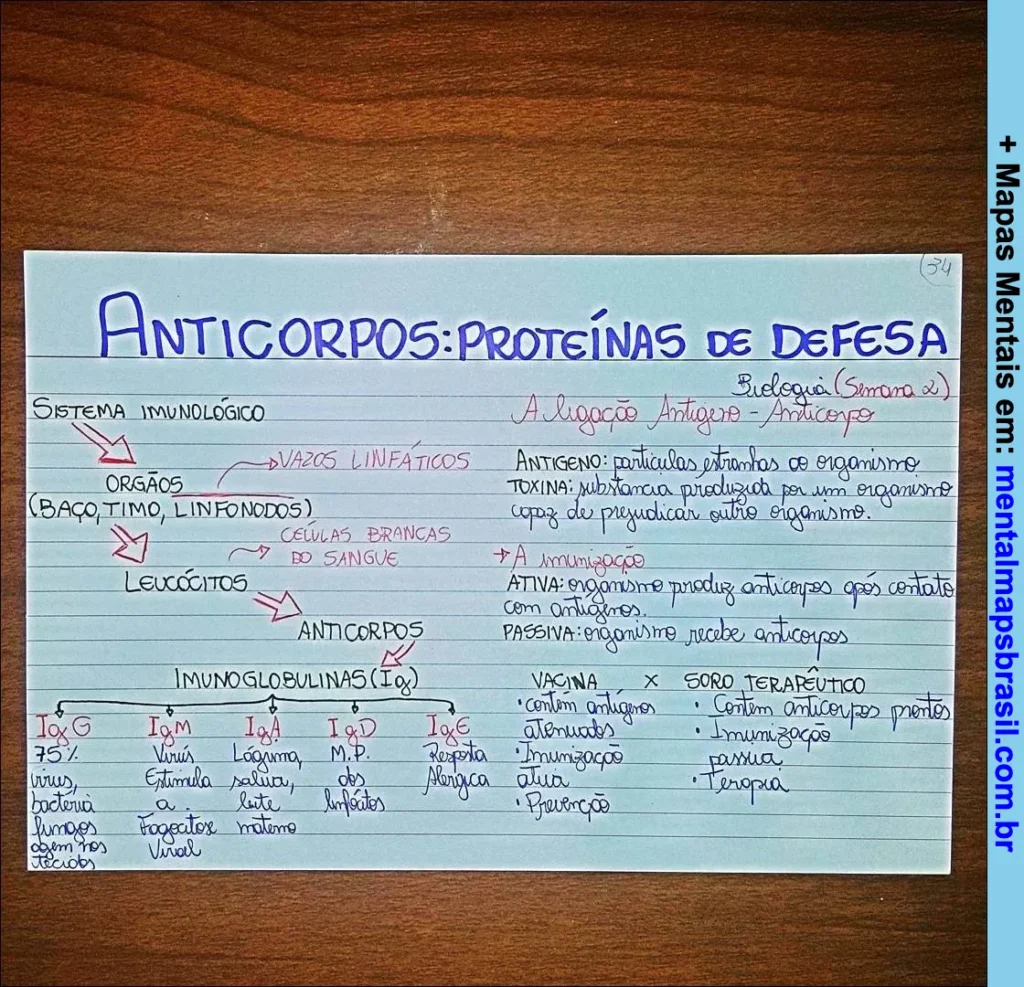 (34
ANTICORPOS: PROTEÍNAS DE DEFESA
Biologia (Semana 2)
SISTEMA IMUNOLÓGICO
ORGÃOS
VAZOS LINFÁTICOS
(BAÇO, TIMO, LINFONODOS)
CÉLULAS BRANCAS
DO SANGUE
LEUCÓCITOS
ANTICORPOS
IMUNOGLOBULINAS (Ig)
IgG
75%
vírus,
bactéria
fungos
agem nos
tecidos
IgM
Virús
Estimula
a
Fagocitose
Viral
IgA
Lágrima,
saliva,
leite
materno
IgD
M.P.
dos
linfócitos
IgE
Resposta
Alérgica
A ligação Antígeno - Anticorpo
ANTIGENO: partículas estranhas ao organismo
TOXINA: substância produzida por um organismo
capaz de prejudicar outro organismo.
→ A imunização
ATIVA: organismo produz anticorpos após contato
com antígenos.
PASSIVA: organismo recebe anticorpos
VACINA X SORO TERAPÊUTICO
• contém antígenos
atenuados
• Imunização
ativa
• Prevenção
• Contém anticorpos prontos
• Imunização
passiva
• Terapia
+ Mapas Mentais em: mentalmapsbrasil.com.br